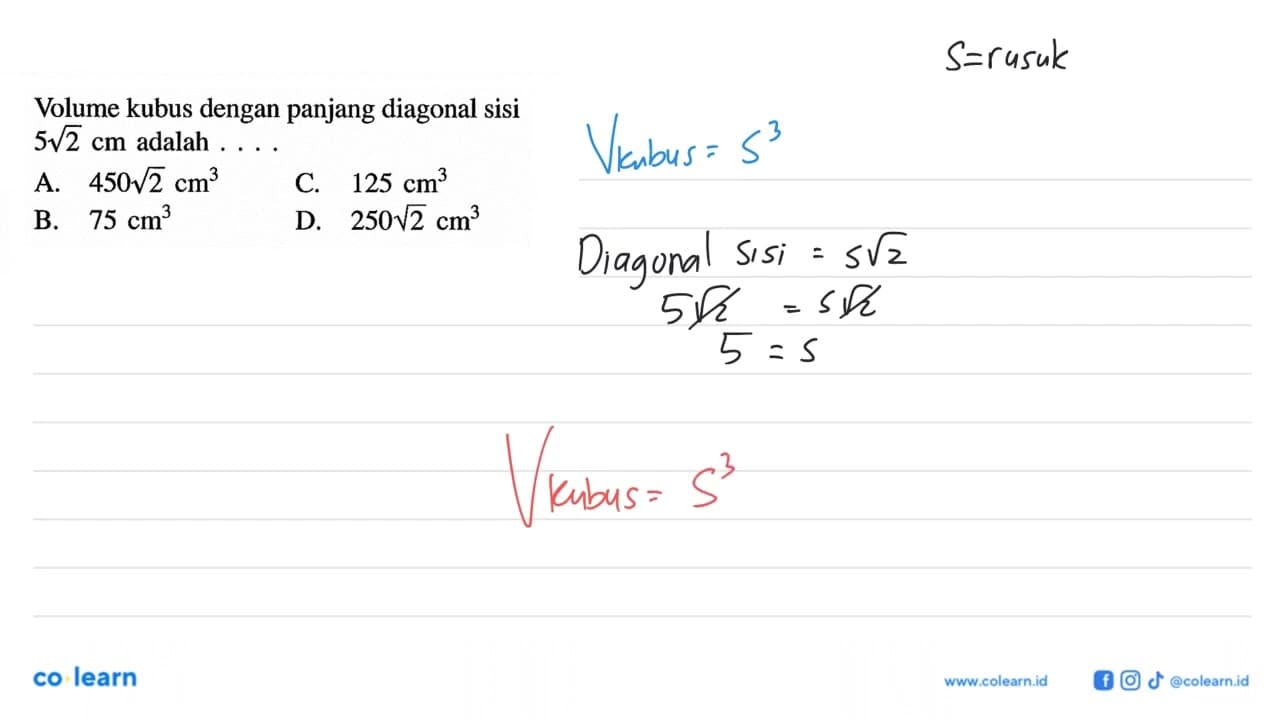 S=rusuk
Volume kubus dengan panjang diagonal sisi
5√2 cm adalah . . . .
A. 450√2 cm³ C. 125 cm³
B. 75 cm³ D. 250√2 cm³
Vkubus = S³
Diagonal sisi = s√2
5√2 = s√2
5 = s
Vkubus = S³
co learn
www.colearn.id
@colearn.id